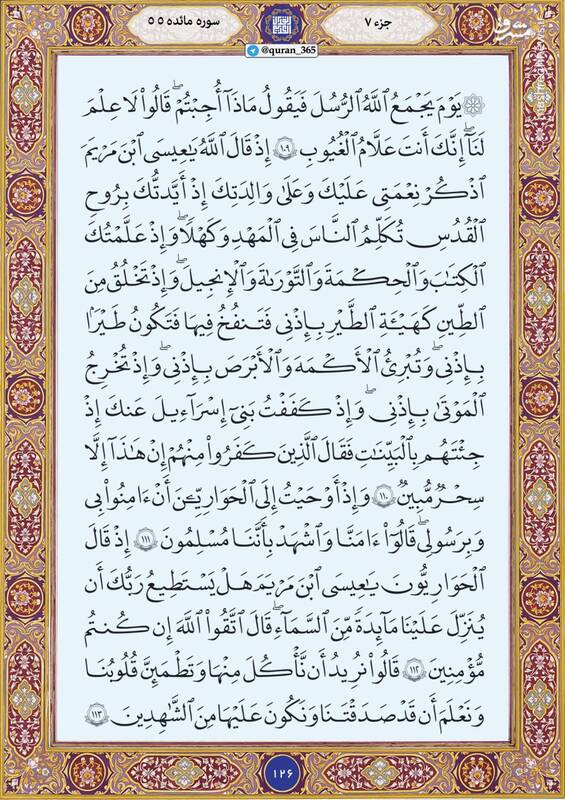 جزء ۷
سوره مائده ۵
۵
@quran_365
مشرق
mashreghnews.ir
۞ يَوۡمَ يَجۡمَعُ ٱللَّهُ ٱلرُّسُلَ فَيَقُولُ مَاذَآ أُجِبۡتُمۡۖ قَالُواْ لَا عِلۡمَ
لَنَآۖ إِنَّكَ أَنتَ عَلَّٰمُ ٱلۡغُيُوبِ ١٠٩ إِذۡ قَالَ ٱللَّهُ يَٰعِيسَى ٱبۡنَ مَرۡيَمَ
ٱذۡكُرۡ نِعۡمَتِي عَلَيۡكَ وَعَلَىٰ وَٰلِدَتِكَ إِذۡ أَيَّدتُّكَ بِرُوحِ
ٱلۡقُدُسِ تُكَلِّمُ ٱلنَّاسَ فِي ٱلۡمَهۡدِ وَكَهۡلٗاۖ وَإِذۡ عَلَّمۡتُكَ
ٱلۡكِتَٰبَ وَٱلۡحِكۡمَةَ وَٱلتَّوۡرَىٰةَ وَٱلۡإِنجِيلَۖ وَإِذۡ تَخۡلُقُ مِنَ
ٱلطِّينِ كَهَيۡـَٔةِ ٱلطَّيۡرِ بِإِذۡنِي فَتَنفُخُ فِيهَا فَتَكُونُ طَيۡرَۢا
بِإِذۡنِيۖ وَتُبۡرِئُ ٱلۡأَكۡمَهَ وَٱلۡأَبۡرَصَ بِإِذۡنِيۖ وَإِذۡ تُخۡرِجُ
ٱلۡمَوۡتَىٰ بِإِذۡنِيۖ وَإِذۡ كَفَفۡتُ بَنِيٓ إِسۡرَٰٓءِيلَ عَنكَ إِذۡ
جِئۡتَهُم بِٱلۡبَيِّنَٰتِ فَقَالَ ٱلَّذِينَ كَفَرُواْ مِنۡهُمۡ إِنۡ هَٰذَآ إِلَّا
سِحۡرٞ مُّبِينٞ ١١٠ وَإِذۡ أَوۡحَيۡتُ إِلَى ٱلۡحَوَارِيِّـۧنَ أَنۡ ءَامِنُواْ بِي
وَبِرَسُولِي قَالُوٓاْ ءَامَنَّا وَٱشۡهَدۡ بِأَنَّنَا مُسۡلِمُونَ ١١١ إِذۡ قَالَ
ٱلۡحَوَارِيُّونَ يَٰعِيسَى ٱبۡنَ مَرۡيَمَ هَلۡ يَسۡتَطِيعُ رَبُّكَ أَن
يُنَزِّلَ عَلَيۡنَا مَآئِدَةٗ مِّنَ ٱلسَّمَآءِۖ قَالَ ٱتَّقُواْ ٱللَّهَ إِن كُنتُم
مُّؤۡمِنِينَ ١١٢ قَالُواْ نُرِيدُ أَن نَّأۡكُلَ مِنۡهَا وَتَطۡمَئِنَّ قُلُوبُنَا
وَنَعۡلَمَ أَن قَدۡ صَدَقۡتَنَا وَنَكُونَ عَلَيۡهَا مِنَ ٱلشَّٰهِدِينَ ١١٣
۱۲۶